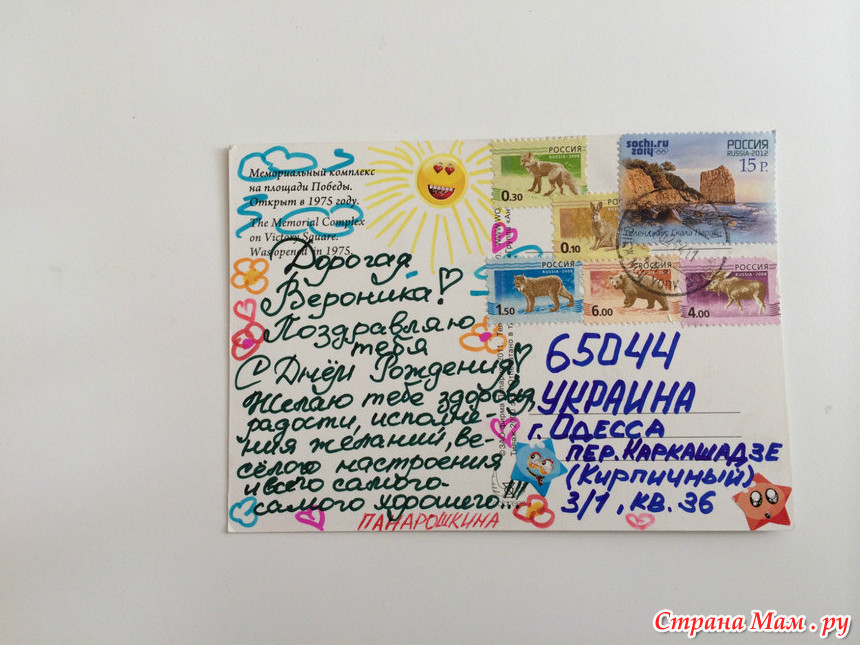 Мемориальный комплекс
на площади Победы.
Открыт в 1975 году.
The Memorial Complex
on Victory Square.
Was opened in 1975.
Дорогая
Вероника!
Поздравляю
тебя
С Днём Рождения!
Желаю тебе здоровья,
радости, исполне-
ния желаний, ве-
сёлого настроения
и всего самого-
самого хорошего...
ПАНАРОШКИНА
РОССИЯ
RUSSIA·2008
0.30
0.10
sochi.ru
2014
РОССИЯ
RUSSIA·2012
15 Р.
Геленджик Скала Парус
РОССИЯ
RUSSIA·2008
1.50
РОССИЯ
RUSSIA·2008
6.00
РОССИЯ
RUSSIA·2008
4.00
65044
УКРАИНА
г. ОДЕССА
ПЕР. КАРКАШАДЗЕ
(Кирпичный)
3/1, КВ. 36
Страна Мам.ру